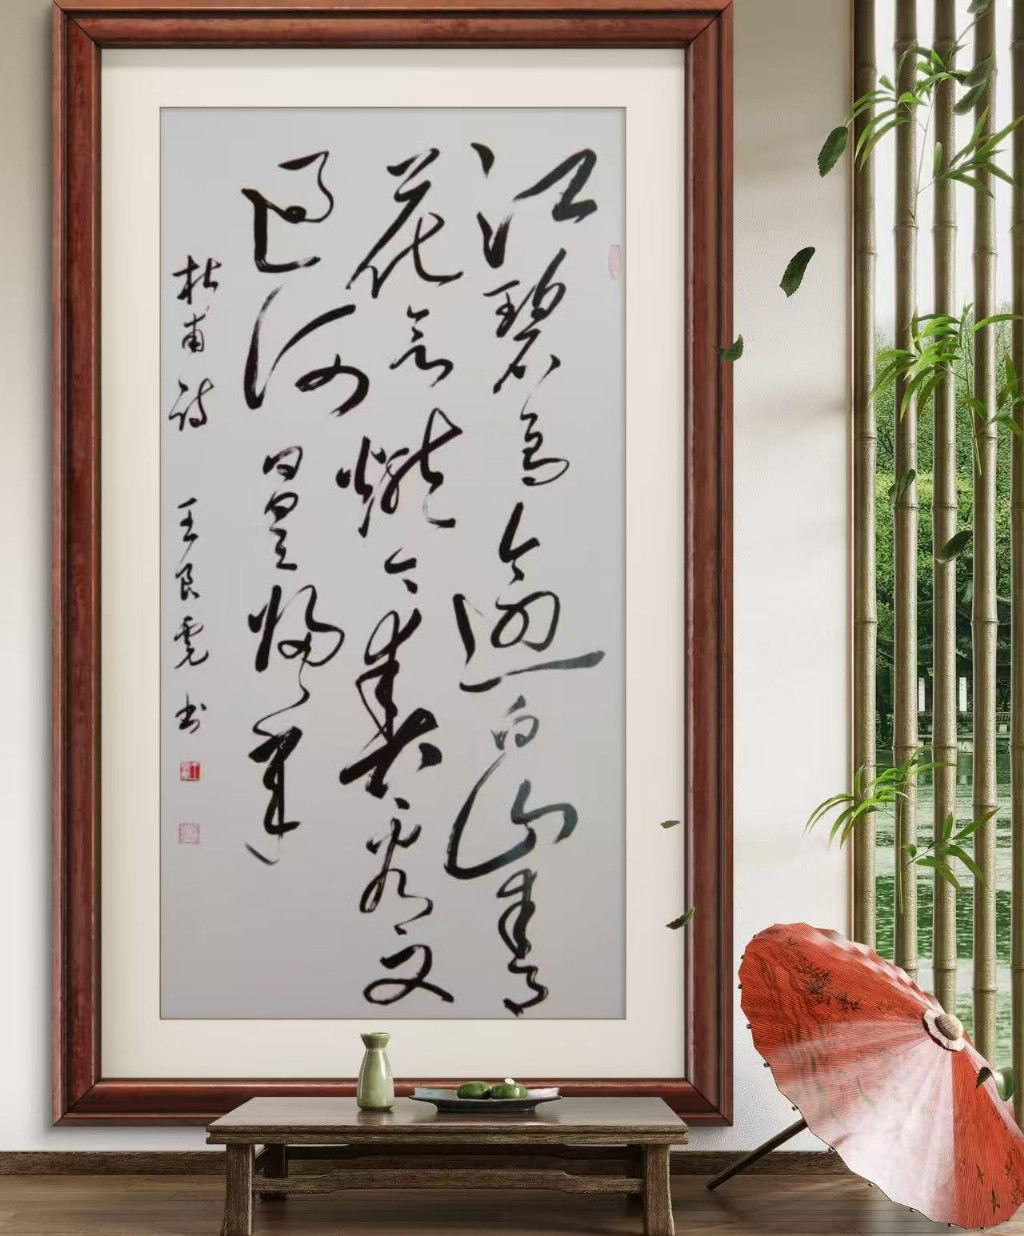 江碧鸟逾白山青
花欲燃今春看又
过何日是归年
杜甫诗 王良虎 书